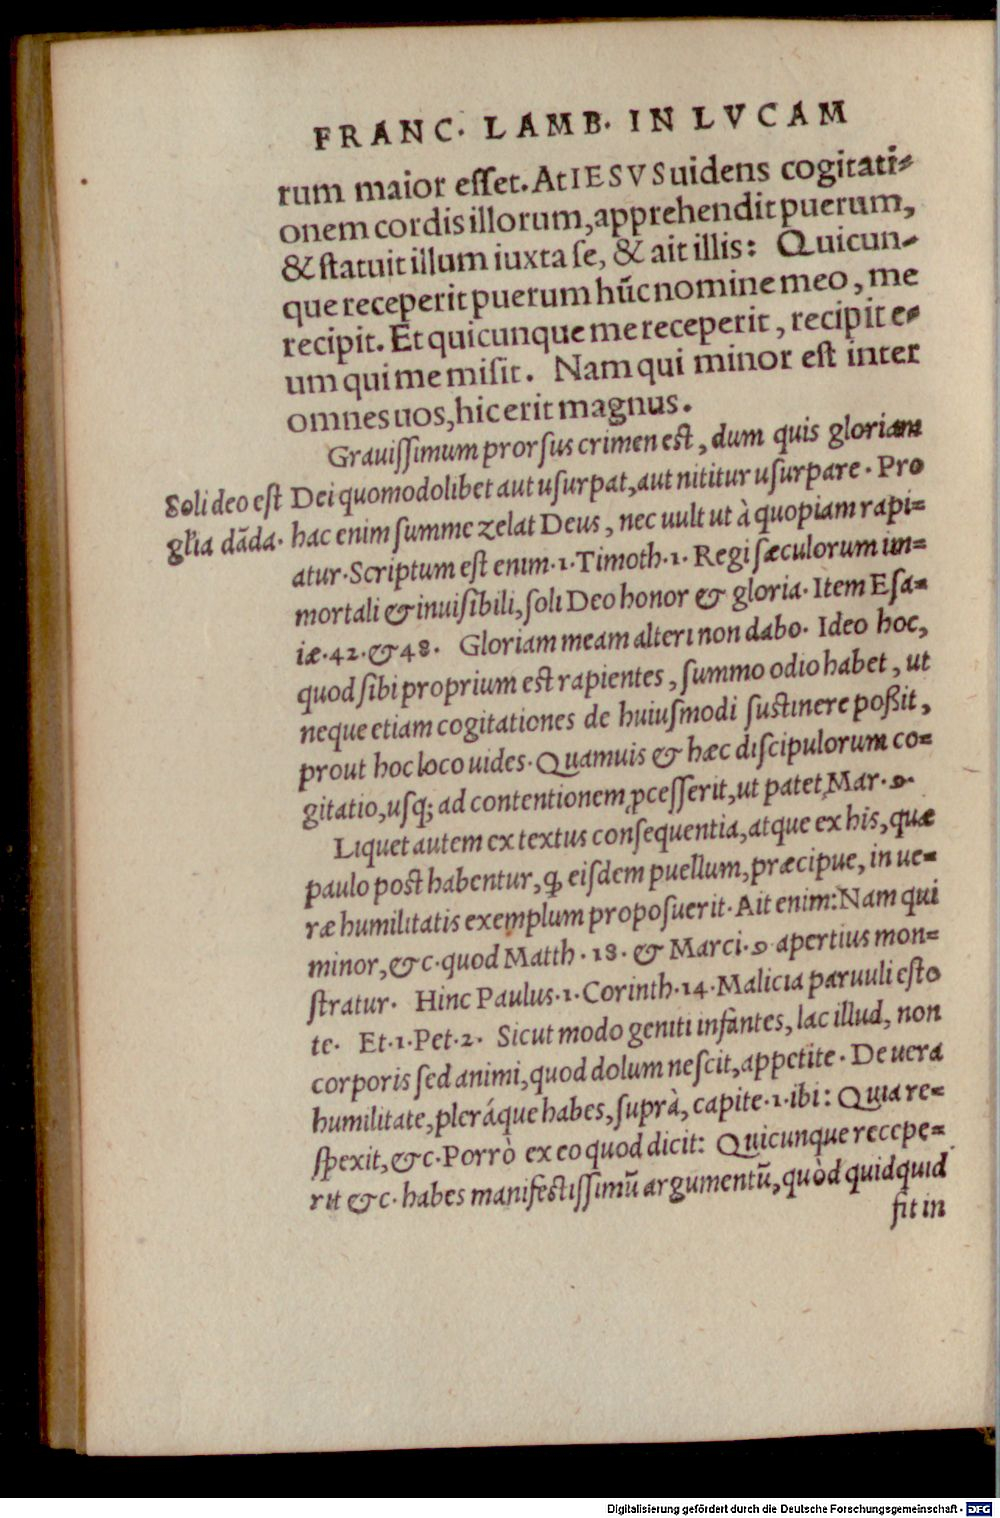 FRANC. LAMB. IN LVCAM
rum maior esset. At IESVS uidens cogitati-
onem cordis illorum, apprehendit puerum,
& statuit illum iuxta se, & ait illis: Quicun-
que receperit puerum hūc nomine meo, me
recipit. Et quicunque me receperit, recipit e-
um qui me misit. Nam qui minor est inter
omnes uos, hic erit magnus.
Grauissimum prorsus crimen est, dum quis gloriam
Soli deo est
Dei quomodolibet aut usurpat, aut nititur usurpare. Pro
gl'ia dāda.
hac enim summe zelat Deus, nec uult ut à quopiam rapi-
atur. Scriptum est enim. 1. Timoth. 1. Regi sæculorum im-
mortali & inuisibili, soli Deo honor & gloria. Item Esa-
iæ. 42. & 48. Gloriam meam alteri non dabo. Ideo hoc,
quod sibi proprium est rapientes, summo odio habet, ut
neque etiam cogitationes de huiusmodi sustinere poßit,
prout hoc loco uides. Quamuis & hæc discipulorum co-
gitatio, usq; ad contentionem ꝓcesserit, ut patet Mar. 9.
Liquet autem ex textus consequentia, atque ex his, quæ
paulo post habentur, ꝙ eisdem puellum, præcipue, in ue-
ræ humilitatis exemplum proposuerit. Ait enim: Nam qui
minor, &c. quod Matth. 18. & Marci. 9 apertius mon-
stratur. Hinc Paulus. 1. Corinth. 14. Malicia paruuli esto
te. Et. 1. Pet. 2. Sicut modo geniti infantes, lac illud, non
corporis sed animi, quod dolum nescit, appetite. De uera
humilitate, pleráque habes, suprà, capite. 1. ibi: Quia re-
spexit, &c. Porrò ex eo quod dicit: Quicunque recepe-
rit &c. habes manifestissimū argumentū, quòd quidquid
fit in
Digitalisierung gefördert durch die Deutsche Forschungsgemeinschaft - DFG